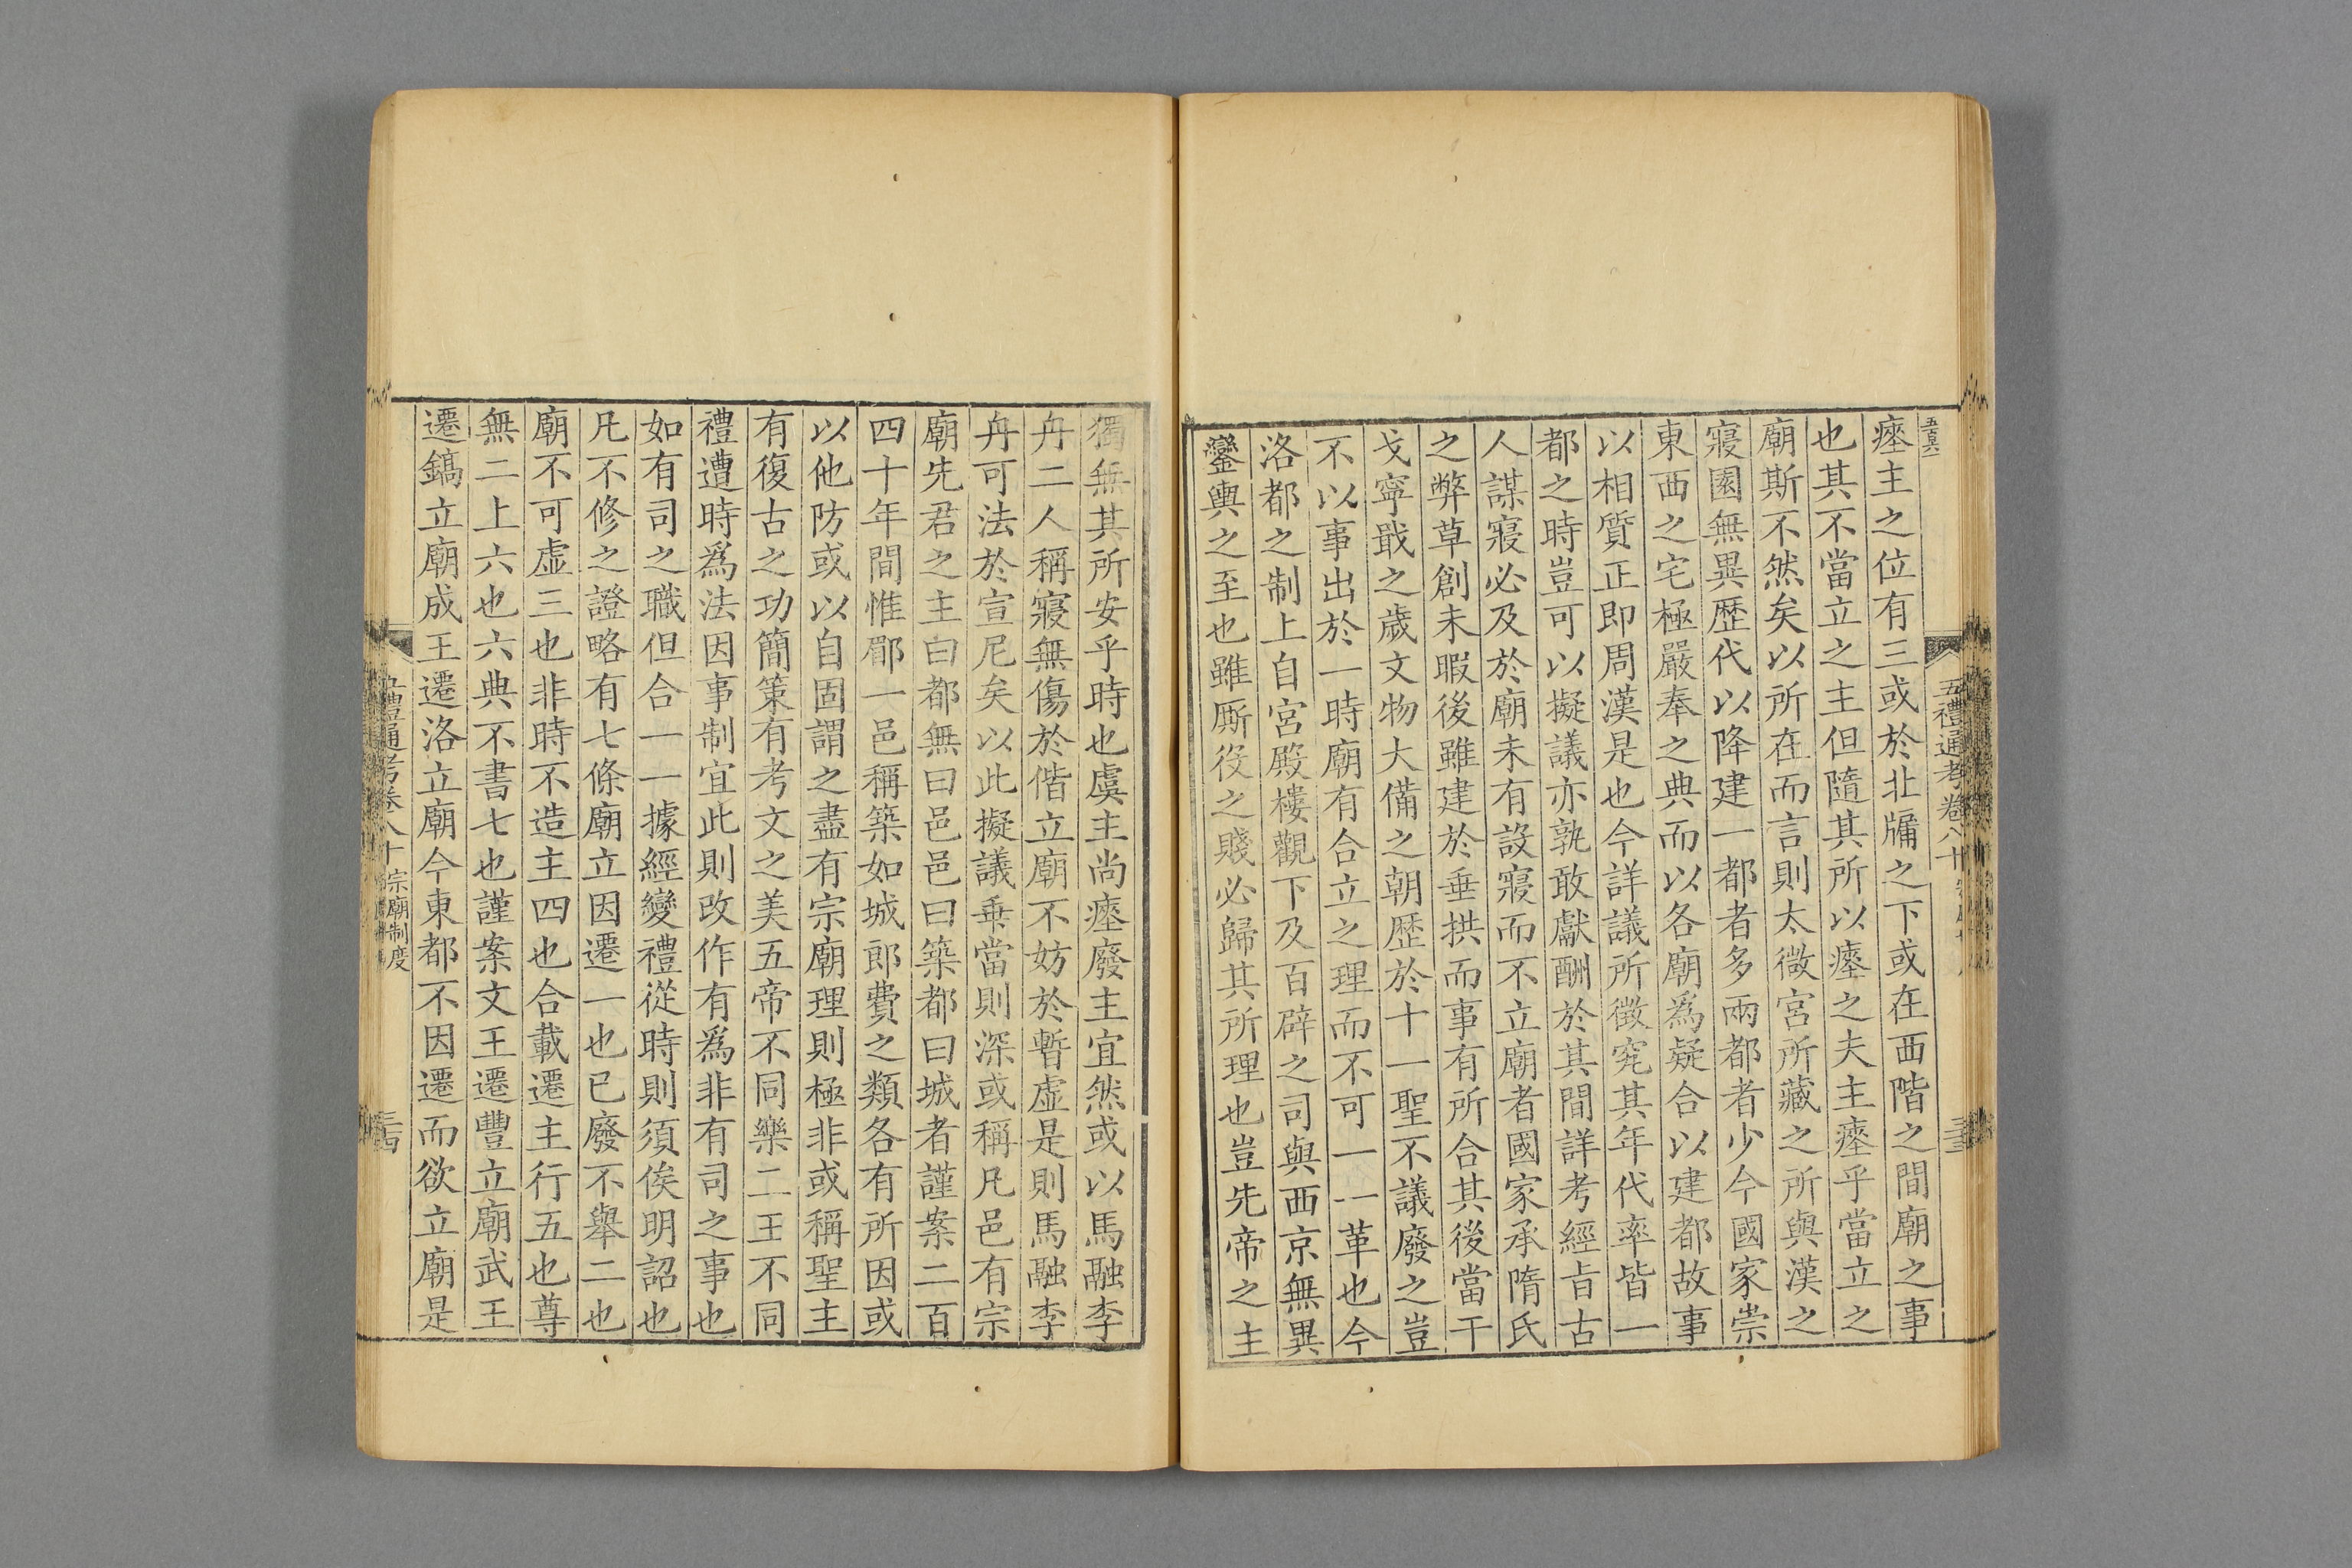 五禮通考卷八十
瘞主之位有三或於北牖之下或在西階之間廟之事
也其不當立之主但隨其所以瘞之夫主瘞乎當立之
廟斯不然矣以所在而言則太微宮所藏之所與漢之
寢園無異歷代以降建一都者多兩都者少今國家崇
東西之宅極嚴奉之典而以各廟爲疑合以建都故事
以相質正即周漢是也今詳議所徵究其年代率皆一
都之時豈可以擬議亦孰敢獻酬於其間詳考經旨古
人謀寢必及於廟未有設寢而不立廟者國家承隋氏
之弊草創未暇後雖建於垂拱而事有所合其後當干
戈寧戢之歲文物大備之朝歷於十一聖不議廢之豈
不以事出於一時廟有合立之理而不可一一革也今
洛都之制上自宮殿樓觀下及百辟之司與西京無異
鑾輿之至也雖厮役之賤必歸其所理也豈先帝之主
獨無其所安乎時也虞主尚瘞廢主宜然或以馬融李
舟二人稱寢無傷於偕立廟不妨於暫虛是則馬融李
舟可法於宣尼矣以此擬議乖當則深或稱凡邑有宗
廟先君之主曰都無曰邑邑曰築都曰城者謹案二百
四十年間惟郿一邑稱築如城郎費之類各有所因或
以他防或以自固謂之盡有宗廟理則極非或稱聖主
有復古之功簡策有考文之美五帝不同樂二王不同
禮遭時爲法因事制宜此則改作有爲非有司之事也
如有司之職但合一一據經變禮從時則須俟明詔也
凡不修之證略有七條廟立因遷一也已廢不舉二也
廟不可虛三也非時不造主四也合載遷主行五也尊
無二上六也六典不書七也謹案文王遷豐立廟武王
遷鎬立廟成王遷洛立廟今東都不因遷而欲立廟是
五禮通考卷八十 宗廟制度 三四